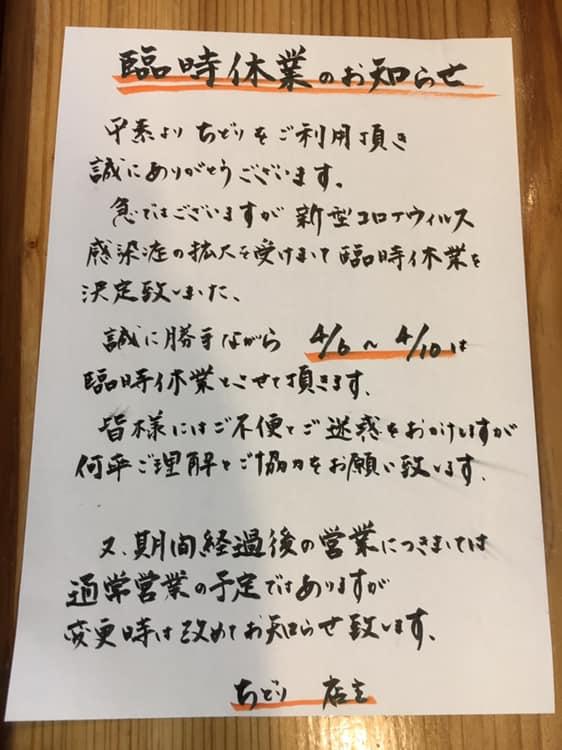 臨時休業のお知らせ
平素より ちどりをご利用頂き
誠にありがとうございます。
急ではございますが 新型コロナウィルス
感染症の拡大を受けまして 臨時休業を
決定致しました、
誠に勝手ながら 4/6 〜 4/10 は
臨時休業とさせて頂きます、
皆様にはご不便とご迷惑をおかけしますが
何卒ご理解とご協力をお願い致します.
又、期間経過後の営業につきましては
通常営業の予定ではありますが
変更時は改めてお知らせ致します、
ちどり 店主